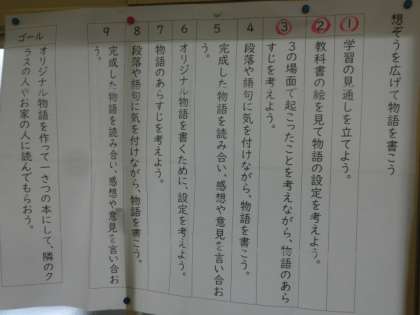 想ぞうを広げて物語を書こう
① 学習の見通しを立てよう。
② 教科書の絵を見て物語の設定を考えよう。
③ 3の場面で起こったことを考えながら、物語のあら
すじを考えよう。
4 段落や語句に気を付けながら、物語を書こう。
5 完成した物語を読み合い、感想や意見を言い合お
う。
6 オリジナル物語を書くために、設定を考えよう。
7 物語のあらすじを考えよう。
8 段落や語句に気を付けながら、物語を書こう。
9 完成した物語を読み合い、感想や意見を言い合お
う。
ゴール
オリジナル物語を作って一さつの本にして、隣のク
ラスの人やお家の人に読んでもらおう。